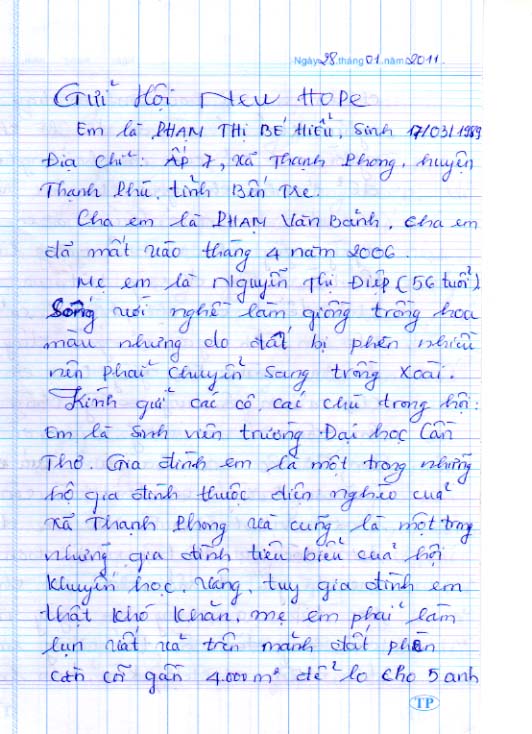 Ngày 28 tháng 01 năm 2011
Gửi Hội New Hope
Em là PHẠM THỊ BÉ HIẾU, Sinh 17/03/1989
Địa Chỉ: ẤP 7, Xã Thạnh Phong, huyện
Thạnh Phú, tỉnh Bến Tre.
Cha em là PHẠM Văn Bảnh, cha em
đã mất vào tháng 4 năm 2006.
Mẹ em là Nguyễn Thị Điệp (56 tuổi)
Sống với nghề làm giồng trồng hoa
màu nhưng do đất bị phèn nhiều
nên phải chuyển sang trồng xoài.
Kính gửi các cô, các chú trong hội:
Em là Sinh viên trường Đại học Cần
Thơ. Gia đình em là một trong những
hộ gia đình thuộc diện nghèo của
Xã Thạnh Phong và cũng là một trong
những gia đình tiêu biểu của hội
Khuyến học. Vâng, tuy gia đình em
thật khó khăn, mẹ em phải làm
lụn vất vả trên mảnh đất phèn
cằn cỗi gần 4.000m² để lo cho 5 anh
TP